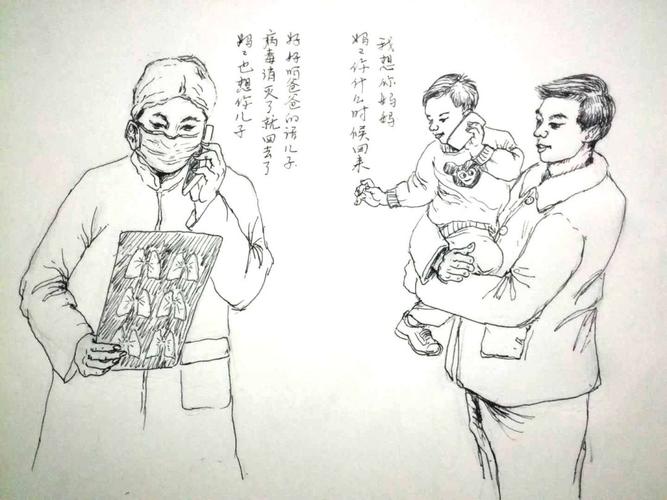 我想你妈妈
妈々你什么时候回来
好好听爸爸的话儿子
病毒消灭了就回去了
妈々也想你儿子